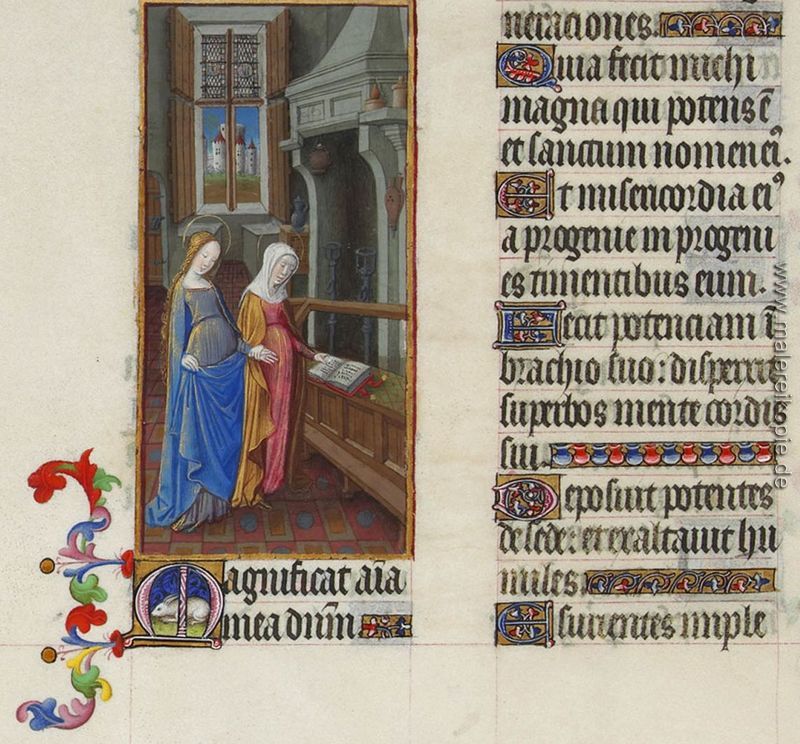 Magnificat aīa
mea dnm̄
neraciones.
Quia fecit michi
magna qui potens ē
et sanctum nomen ei⁹.
Et misericordia ei⁹
a progenie in progeni
es timentibus eum.
Fecit potenciam ī
brachio suo: dispersit
superbos mente cordis
sui.
Deposuit potentes
de sede: et exaltavit hu
miles.
Esurientes imple
www.malereikopie.de